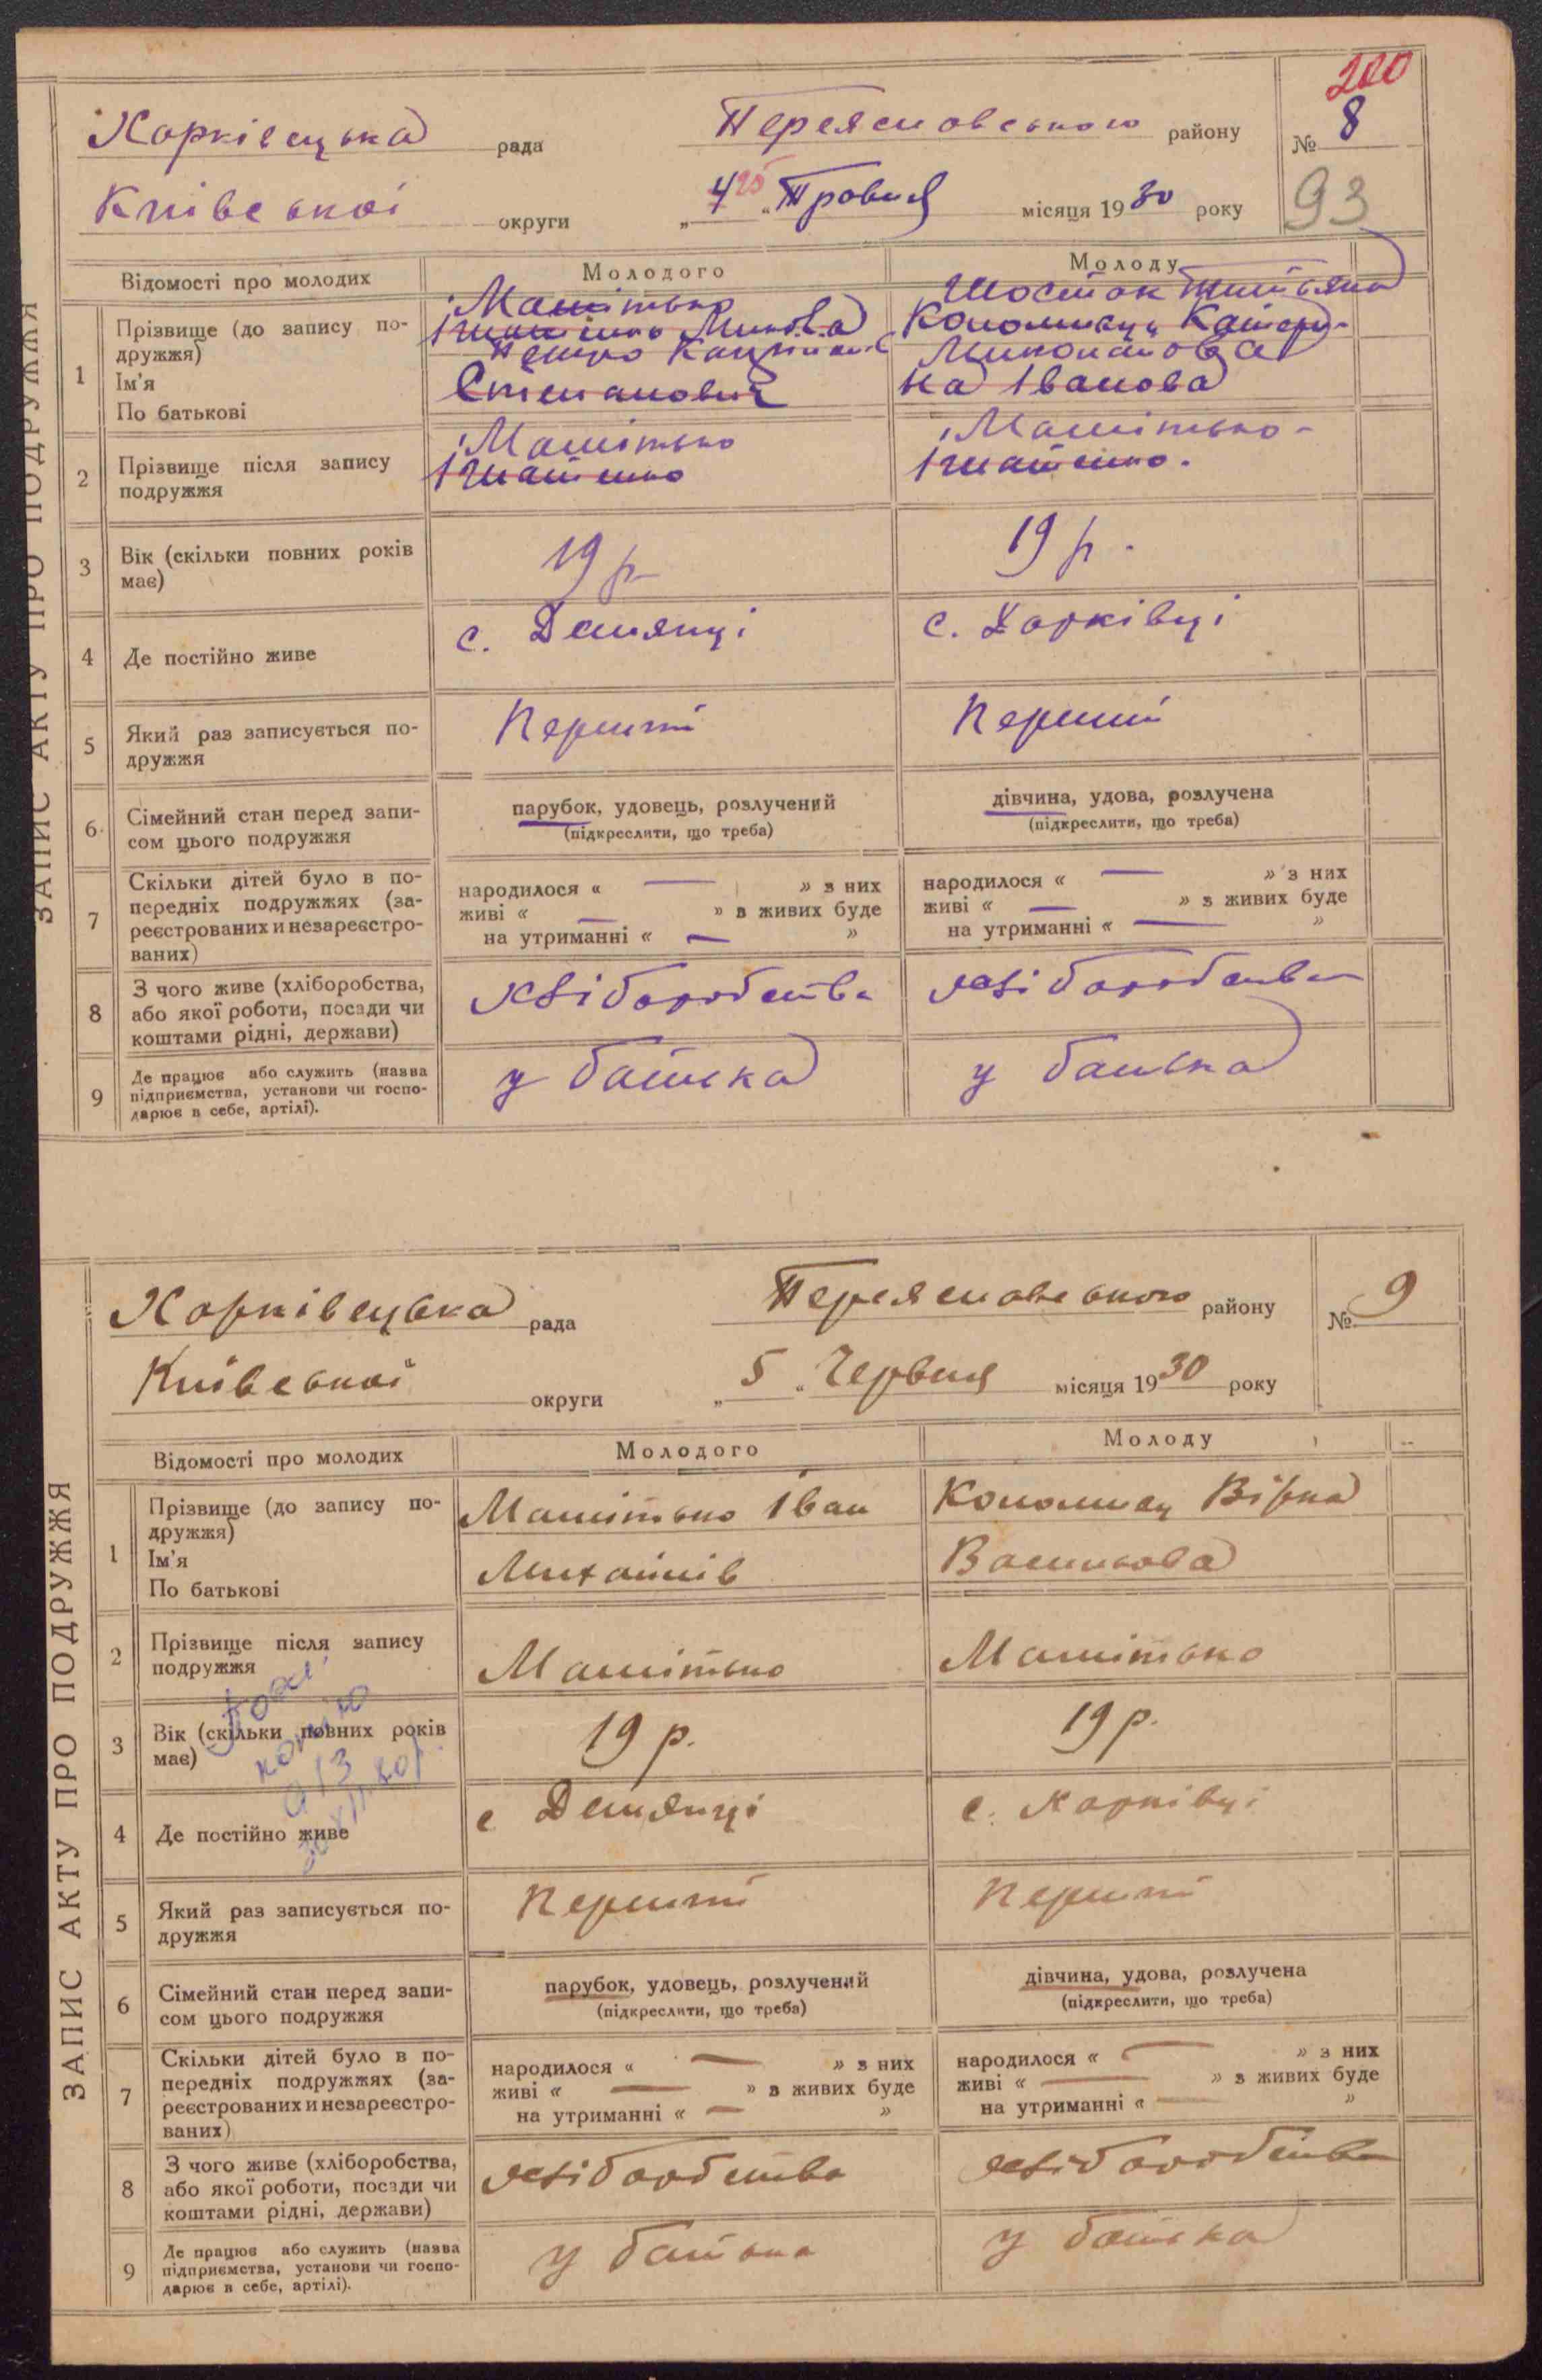 200
Харківецька рада Переяславського району № 8
Київської округи „ 4 25 “ Травня місяця 1930 року
93
ЗАПИС АКТУ ПРО ПОДРУЖЖЯ
Відомості про молодих
Молодого
Молоду
1
Прізвище (до запису по-
дружжя)
Ім'я
По батькові
Машітько
Ігнатенко Микола
Петро
Степанович
Шостак Титяна
Коломиєць Катери-
Миколайова
на Іванова
2
Прізвище після запису
подружжя
Машітько
Ігнатенко
Машітько-
Ігнатенко.
3
Вік (скільки повних років
має)
19 р
19 р.
4
Де постійно живе
с. Демянці
с. Харківці
5
Який раз записується по-
дружжя
Перший
Перший
6
Сімейний стан перед запи-
сом цього подружжя
парубок, удовець, розлучений
(підкреслити, що треба)
дівчина, удова, розлучена
(підкреслити, що треба)
7
Скільки дітей було в по-
передніх подружжях (за-
реєстрованих и незареєстро-
ваних)
народилося « — » з них
живі « — » з живих буде
на утриманні « — »
народилося « — » з них
живі « — » з живих буде
на утриманні « — »
8
З чого живе (хліборобства,
або якої роботи, посади чи
коштами рідні, держави)
хліборобства
хліборобства
9
Де працює або служить (назва
підприємства, установи чи госпо-
дарює в себе, артілі).
у батька
у батька
Харківецька рада Переяславського району № 9
Київської округи „ 5 “ Червня місяця 1930 року
ЗАПИС АКТУ ПРО ПОДРУЖЖЯ
Відомості про молодих
Молодого
Молоду
1
Прізвище (до запису по-
дружжя)
Ім'я
По батькові
Машітько Іван
Михайлів
Коломиєць Вірка
Василькова
2
Прізвище після запису
подружжя
Машітько
Машітько
3
Вік (скільки повних років
має)
19 р.
19 р.
копію
4
Де постійно живе
с Демянці
с. Харківці
5
Який раз записується по-
дружжя
Перший
Перший
6
Сімейний стан перед запи-
сом цього подружжя
парубок, удовець, розлучений
(підкреслити, що треба)
дівчина, удова, розлучена
(підкреслити, що треба)
7
Скільки дітей було в по-
передніх подружжях (за-
реєстрованих и незареєстро-
ваних)
народилося « — » з них
живі « — » з живих буде
на утриманні « — »
народилося « — » з них
живі « — » з живих буде
на утриманні « — »
8
З чого живе (хліборобства,
або якої роботи, посади чи
коштами рідні, держави)
хліборобства
хліборобства
9
Де працює або служить (назва
підприємства, установи чи госпо-
дарює в себе, артілі).
у батька
у батька